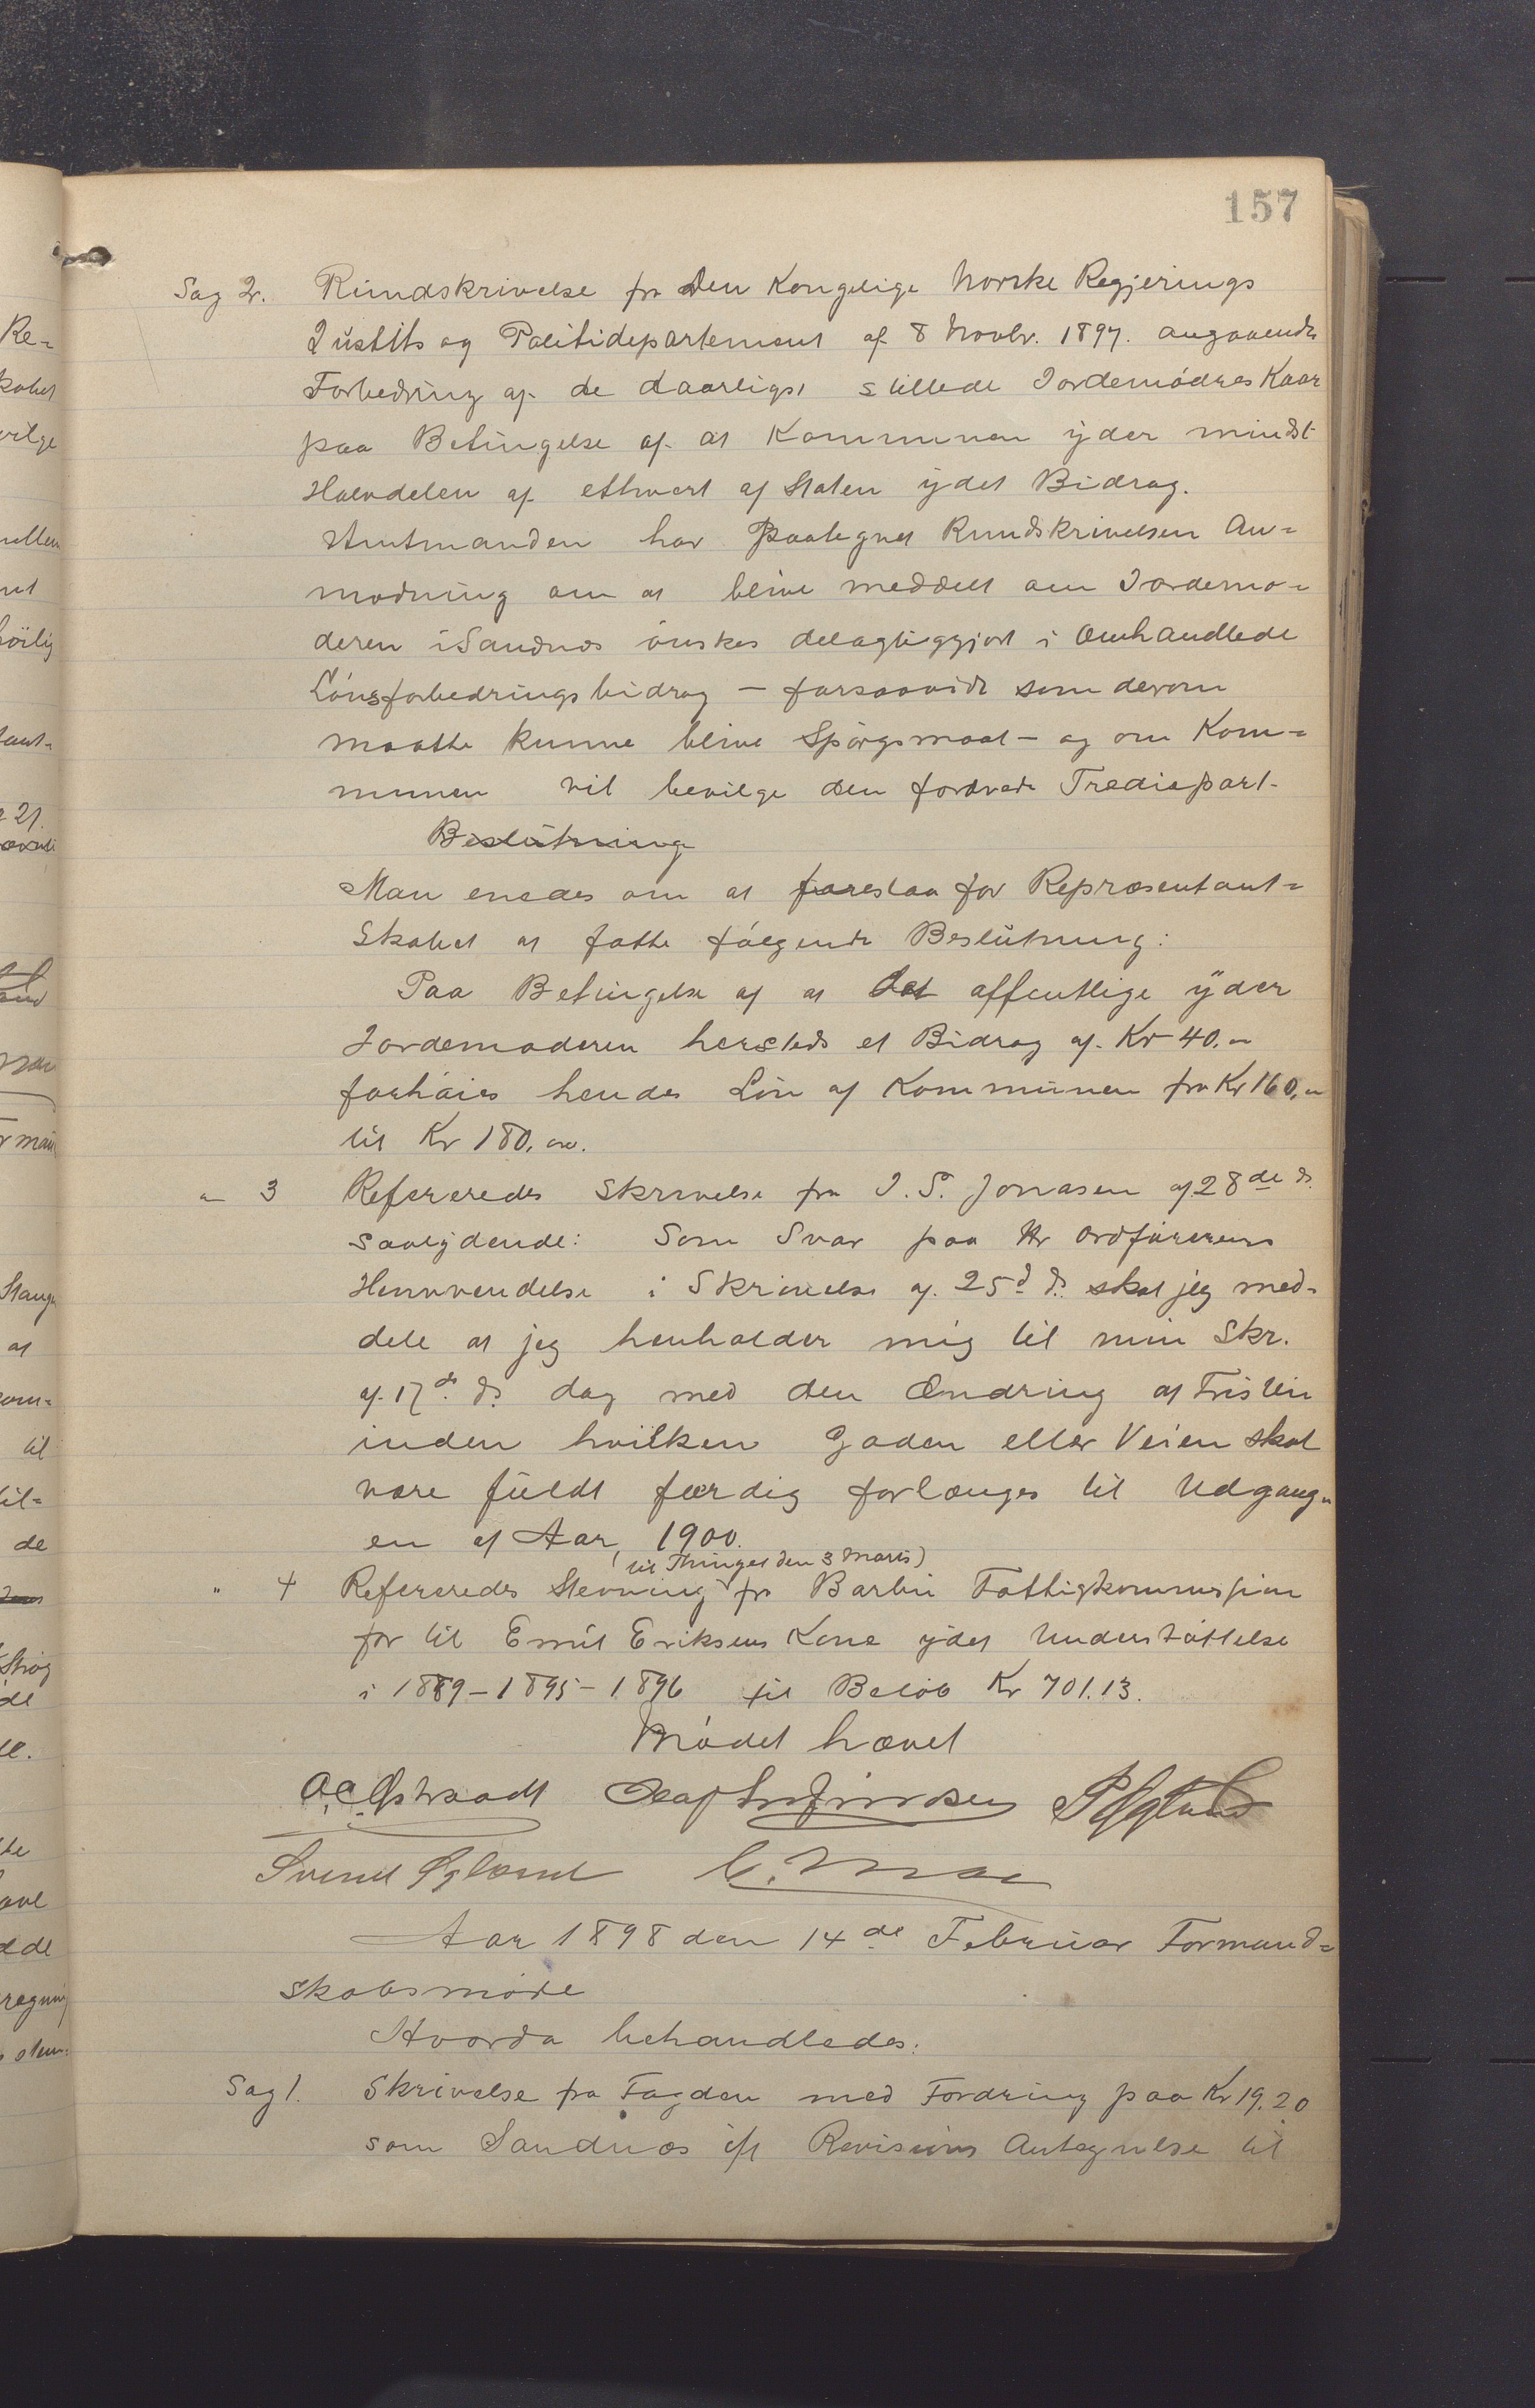 157
Sag 2. Rundskrivelse fra Den Kongelige Norske Regjerings
Justits og Politidepartement af 8 Novbr. 1897. angaaende
Forbedring af de daarligst stillede Jordemødres Kaar
paa Betingelse af at Kommunen yder mindst
Halvdelen af ethvert af Staten ydet Bidrag.
Amtmanden har Paategnet Rundskrivelsen An=
modning om at blive meddelt om Jordemo=
deren i Sandnæs ønskes delagtiggjort i Omhandlede
Lønsforbedringsbidrag – forsaavidt som derom
maatte kunne blive Spørgsmaal – og om Kom=
munen vil bevilge den fordrede Trediepart.
Beslutning
Man enedes om at foreslaa for Repræsentant=
Skabet at fatte følgende Beslutning:
Paa Betingelse af at det offentlige yder
Jordemoderen hersteds et Bidrag af Kr 40.
forhøies hendes Løn af Kommunen fra Kr 160.
til Kr 180.
" 3 Refereredes Skrivelse fra I. S. Jonasen af 28de ds.
saalydende: Som Svar paa Hr Ordførerens
Hennvendelse i Skrivelse af 25d ds. skal jeg med=
dele at jeg henholder mig til min Skr.
af 17d. ds. dag med den Ændring at Fristen
inden hvilken Gaden eller Veien skal
være fuldt færdig forlænges til Udgang=
en af Aar 1900.
(til Thinget den 3 Marts)
" 4 Refereredes Stevning fra Barbu Fattigkommission
for til Emil Eriksens Kone ydet Understøttelse
i 1889 – 1895 – 1896 til Beløb Kr 701.13.
Mødet hævet
Svend Øgland
Aar 1898 den 14de Februar Formand=
skabsmøde
Hvorda behandledes:
Sag 1. Skrivelse fra Fogden med Fordring paa Kr 19.20
som Sandnæs ift Revisions Antegnelse til